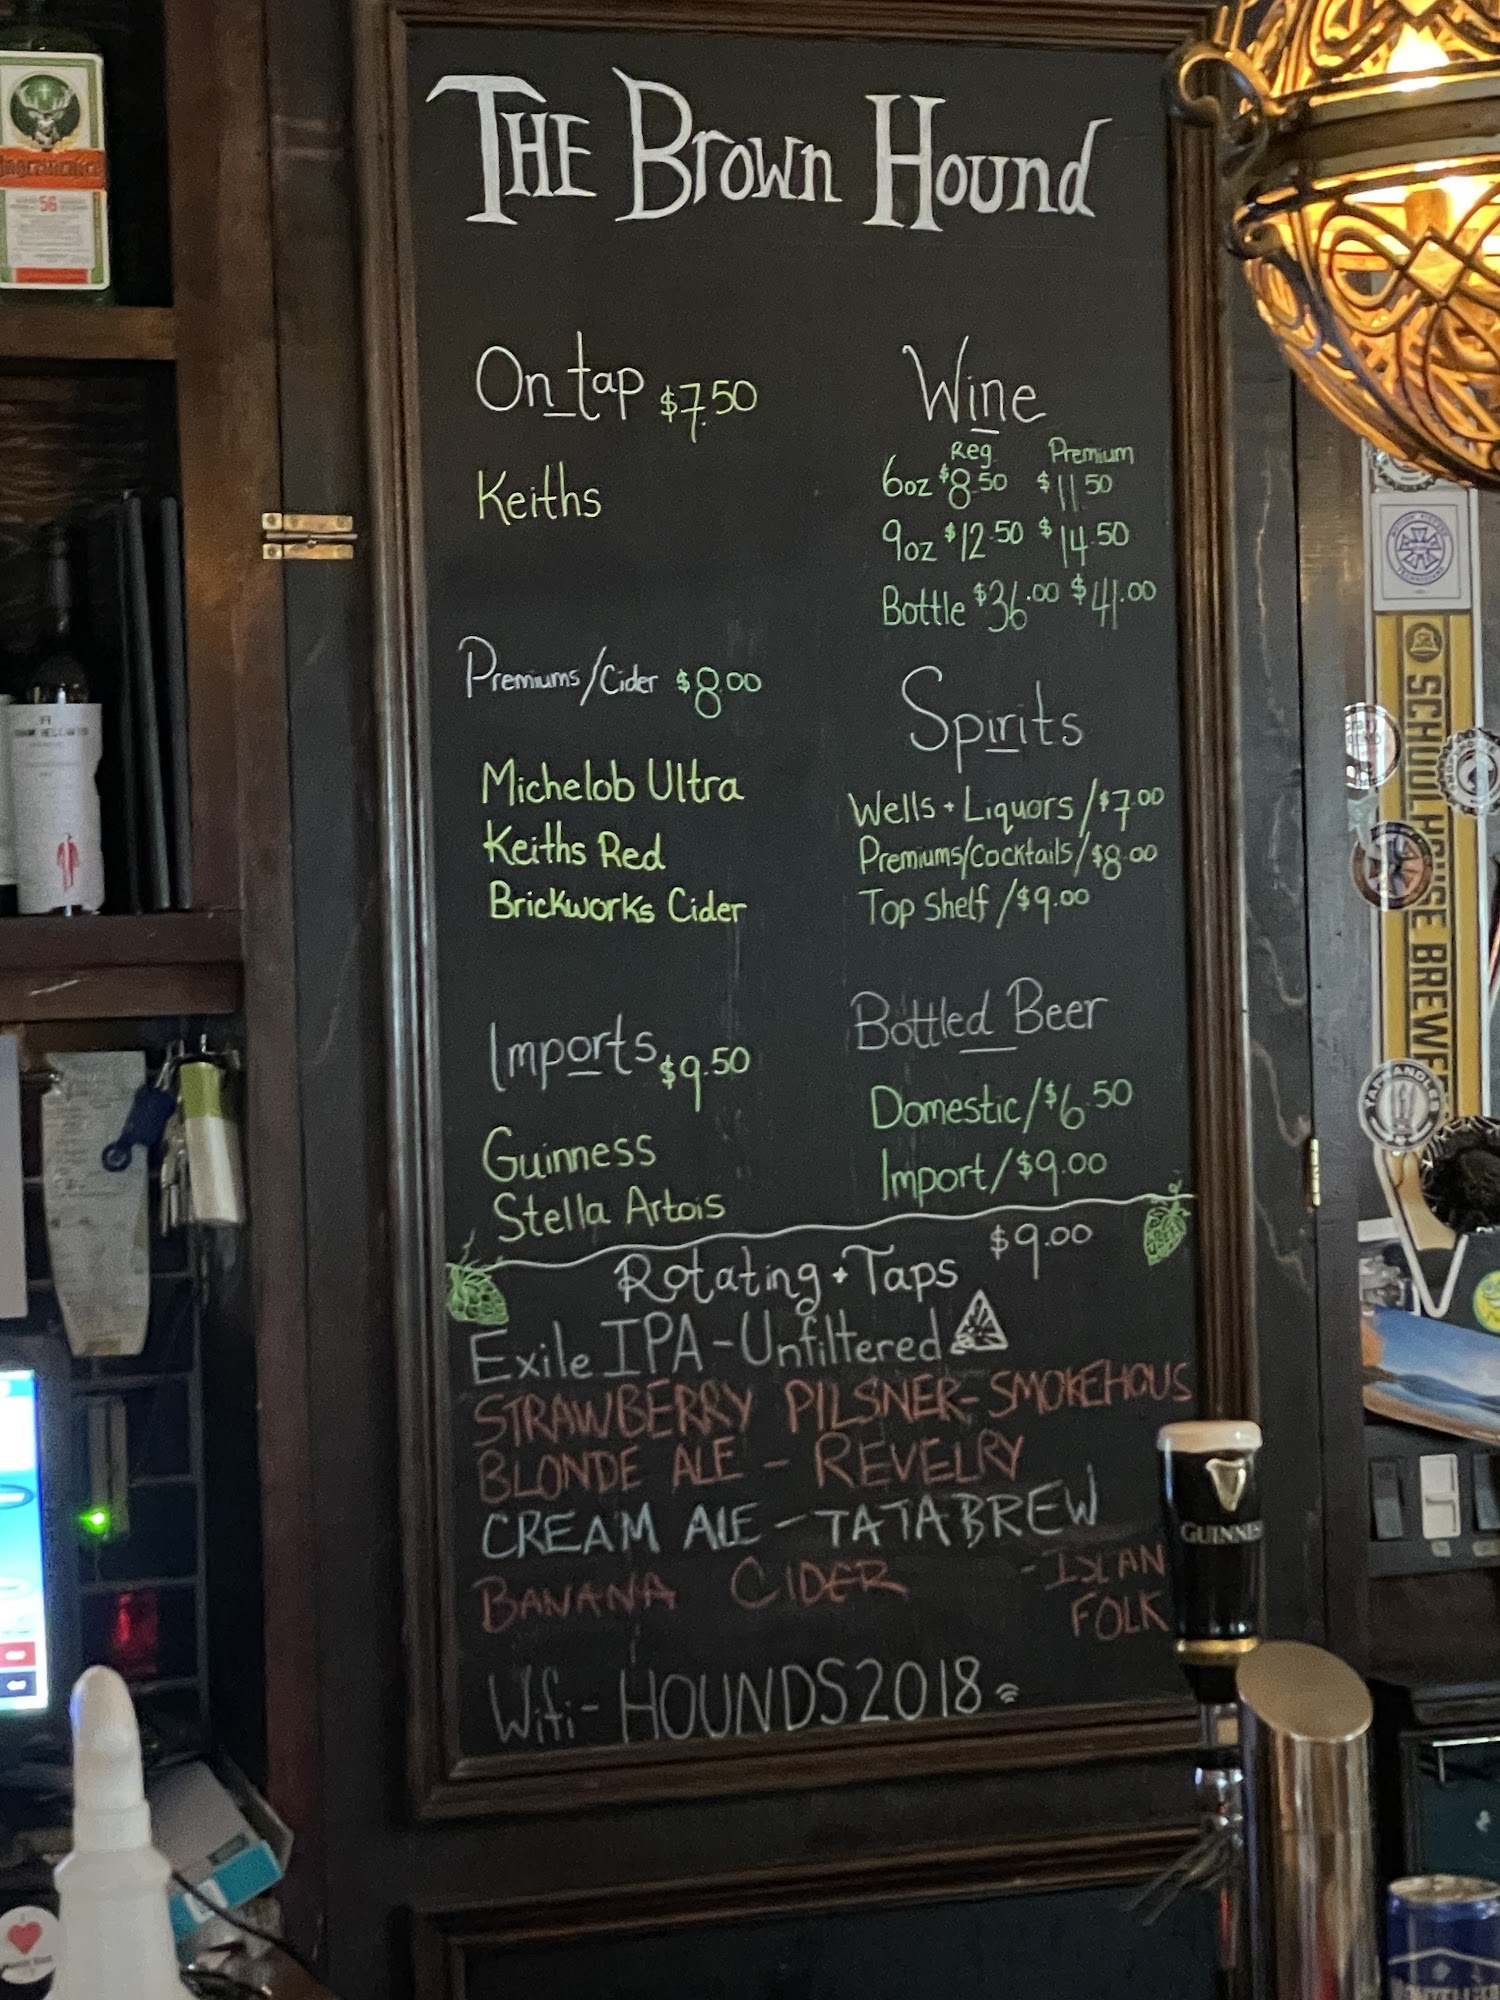 THE Brown Hound
On tap $7.50
Keiths
Premiums/Cider $8.00
Michelob Ultra
Keiths Red
Brickworks Cider
Imports $9.50
Guinness
Stella Artois
Wine
Reg Premium
6oz $8.50 $11.50
9oz $12.50 $14.50
Bottle $36.00 $41.00
Spirits
Wells + Liquors/$7.00
Premiums/Cocktails/$8.00
Top Shelf/$9.00
Bottled Beer
Domestic/$6.50
Import/$9.00
Rotating + Taps $9.00
Exile IPA - Unfiltered
STRAWBERRY PILSNER - SMOKEHOUS
BLONDE ALE - REVELRY
CREAM ALE - TATABREW
BANANA CIDER - ISLAN
FOLK
Wifi - HOUNDS2018
Jägermeister
56
SCHOOLHOUSE BREWE
TAPHANDLES
GUINNES